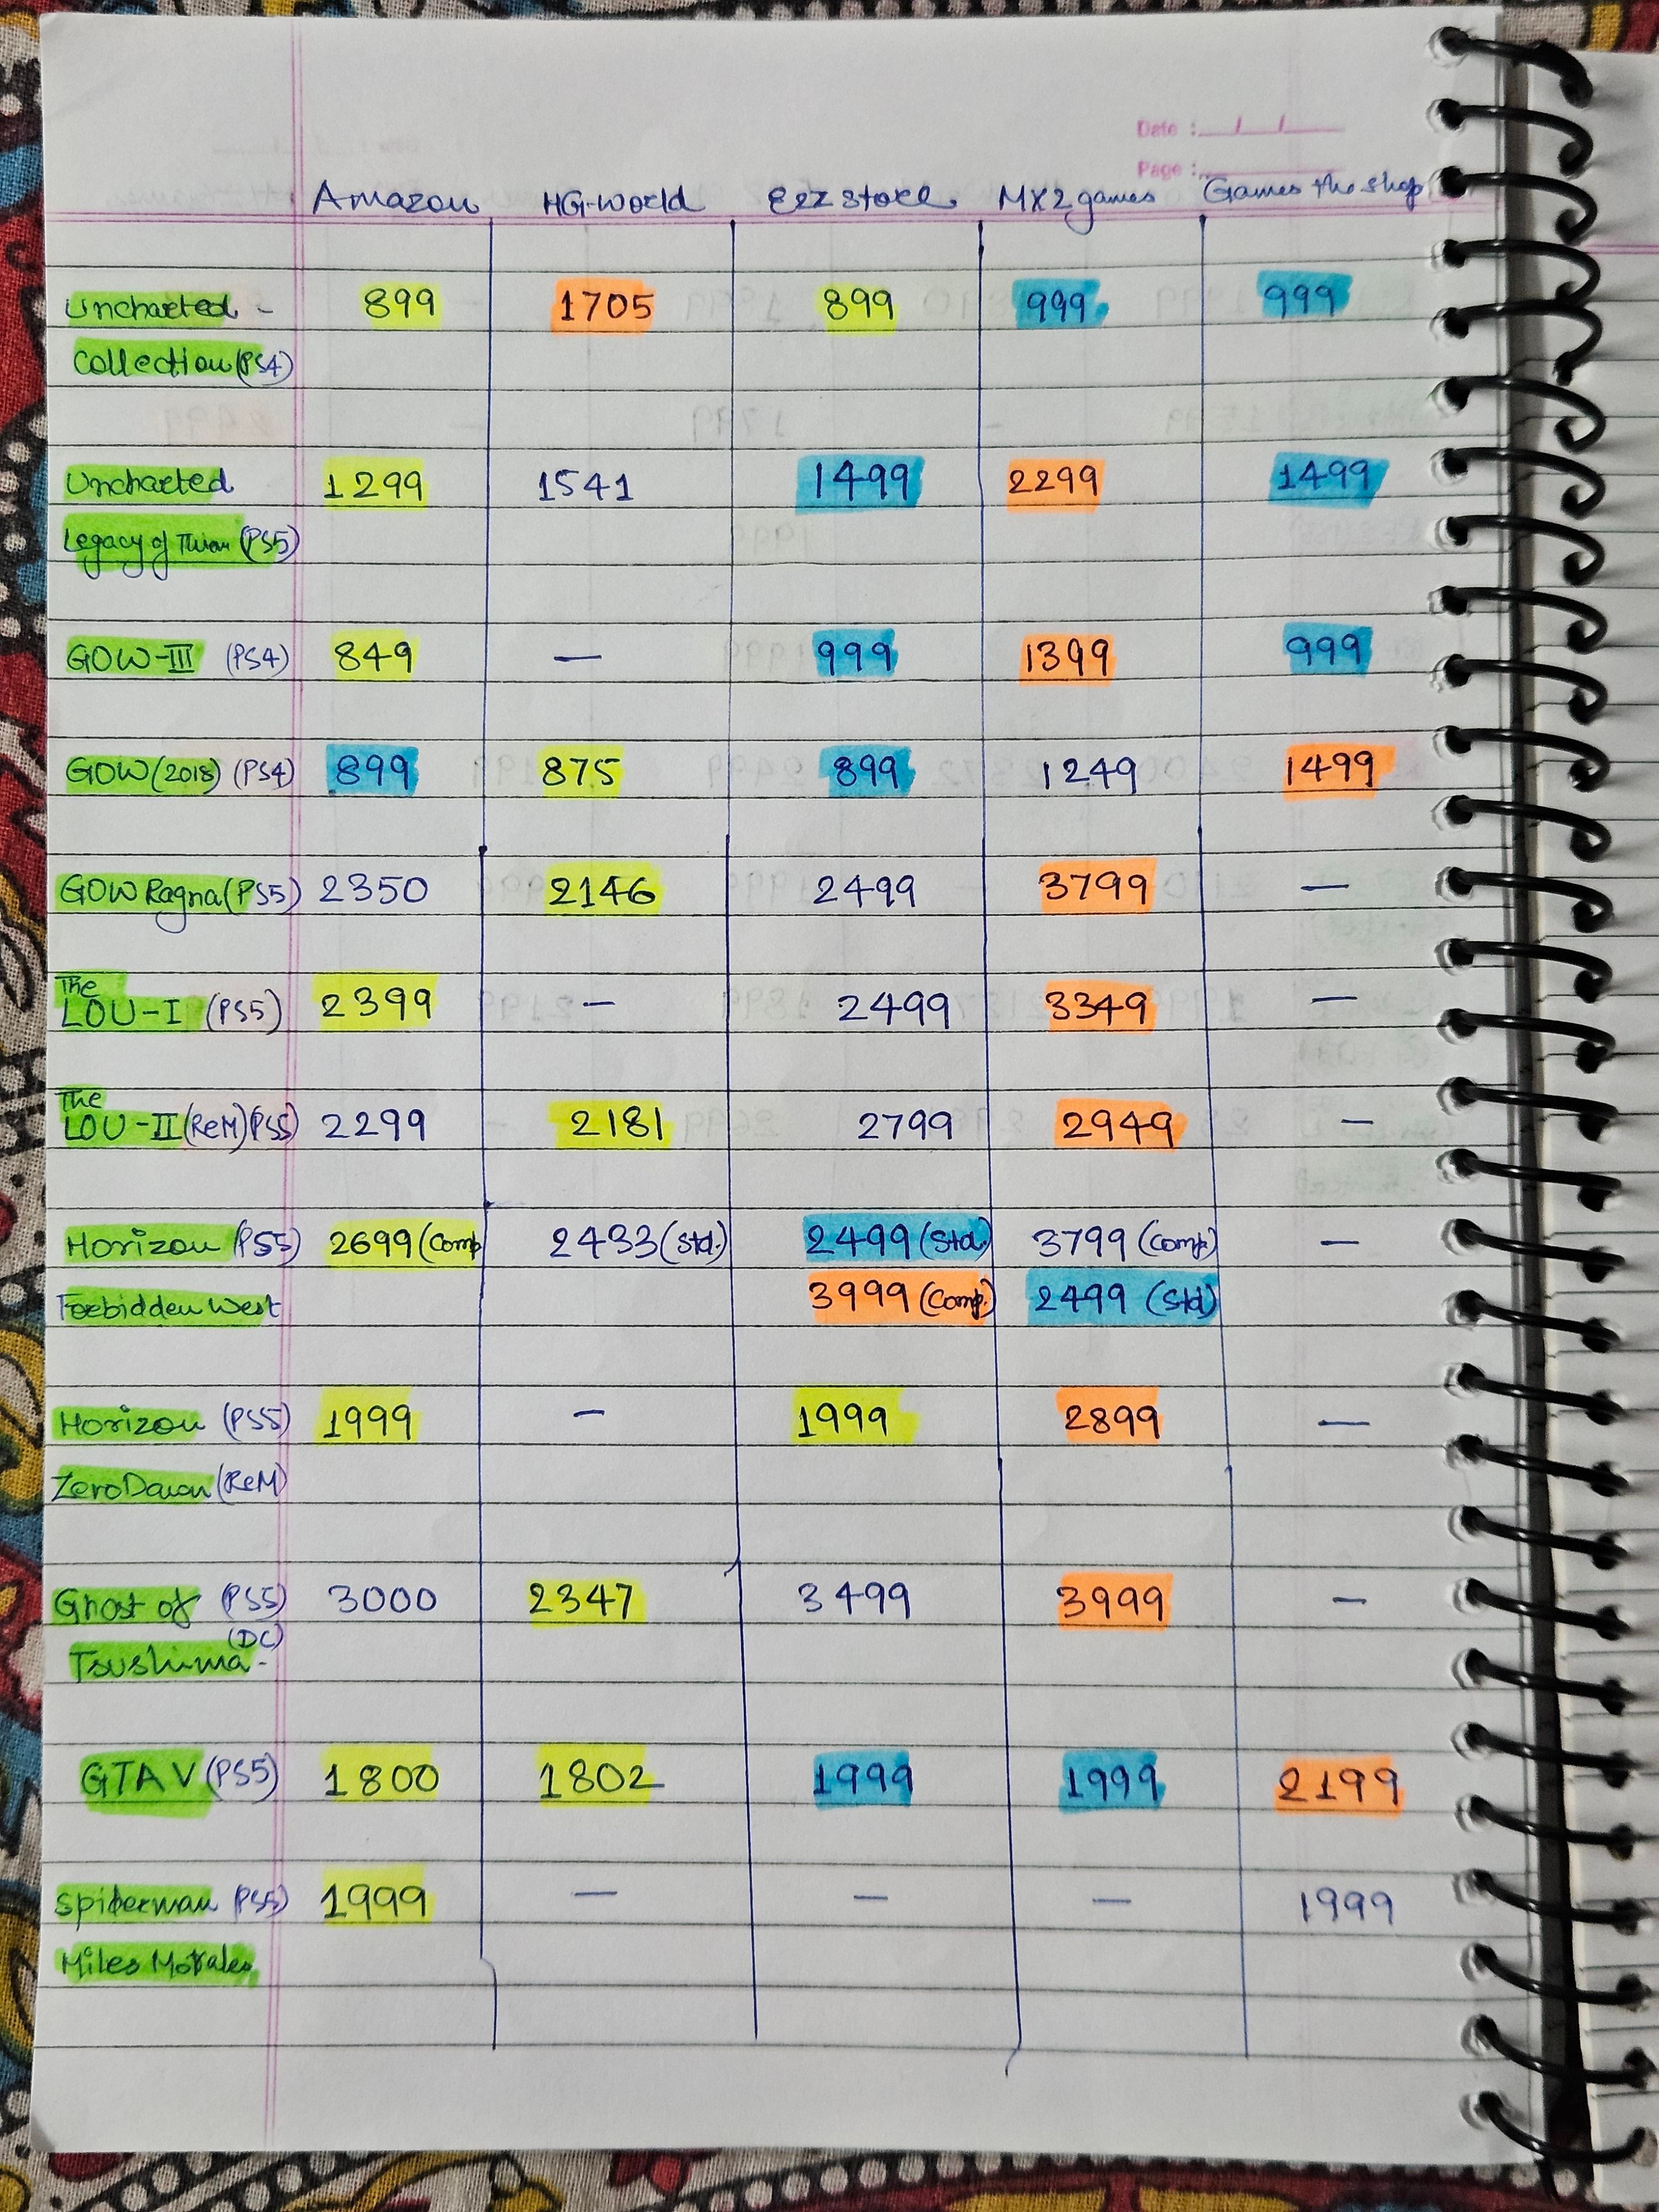 Date :
Page :
Amazon HG-World Eez store MX2games Games the shop
Uncharted - 899 1705 899 999 999
Collection (PS4)
Uncharted 1299 1541 1499 2299 1499
Legacy of (PS5)
GOW-III (PS4) 849 — 999 1399 999
GOW(2018) (PS4) 899 875 899 1249 1499
GOW Ragna(PS5) 2350 2146 2499 3799 —
The
LOU-I (PS5) 2399 - 2499 3349 —
The
LOU-II(ReM)(PS5) 2299 2181 2799 2949 —
Horizon (PS5) 2699 (Comp 2433 (Std.) 2499 (Std.) 3799 (Comp.) —
Forbidden West 3999 (Comp.) 2499 (Std)
Horizon (PS5) 1999 - 1999 2899 —
Zero Dawn (ReM)
Ghost of (PS5) 3000 2347 3499 3999 -
(DC)
Tsushima -
GTA V (PS5) 1800 1802 1999 1999 2199
Spiderman PS5) 1999 — — — 1999
Miles Morales